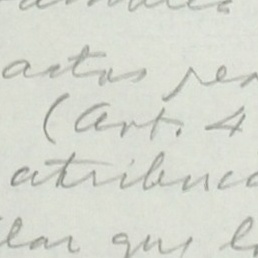 actos per
(Art. 4
atribuci
lar que lo